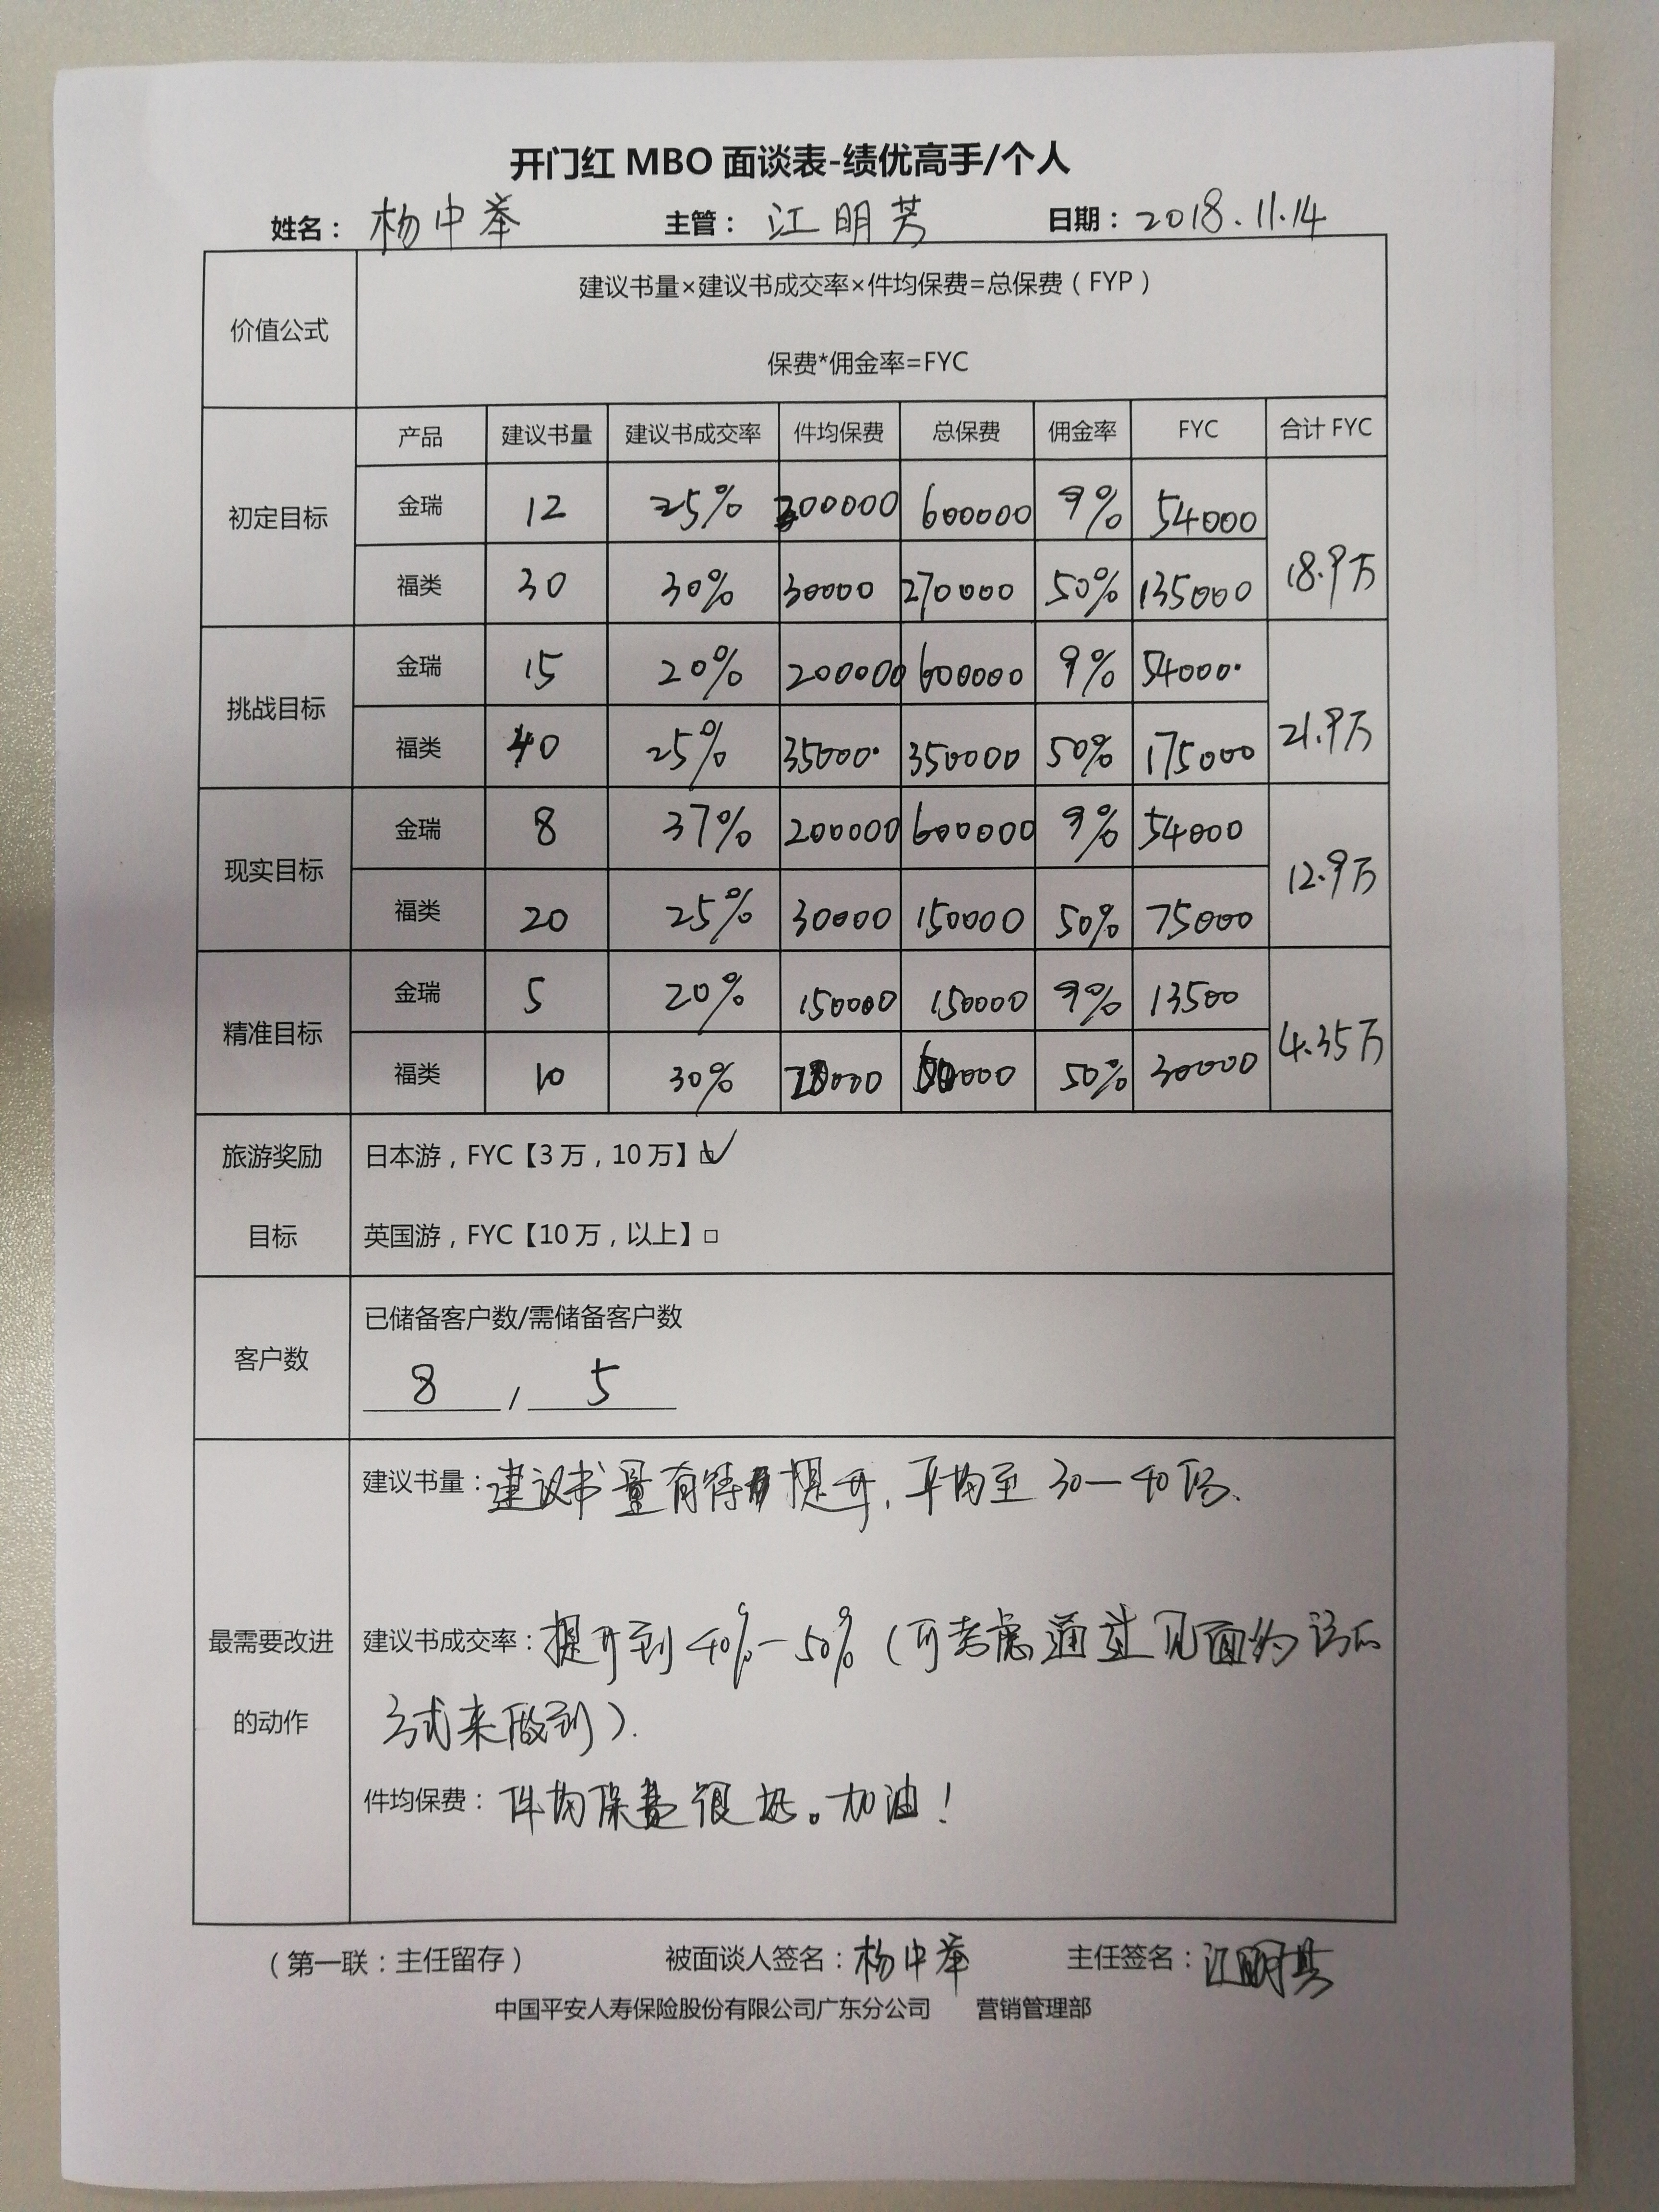 开门红 MBO 面谈表-绩优高手/个人
姓名： 杨中举 主管： 江明芳 日期： 2018.11.14
价值公式 建议书量×建议书成交率×件均保费=总保费（FYP）
保费*佣金率=FYC
产品 建议书量 建议书成交率 件均保费 总保费 佣金率 FYC 合计 FYC
初定目标 金瑞 12 25% 200000 600000 9% 54000 18.9万
福类 30 30% 30000 270000 50% 135000
挑战目标 金瑞 15 20% 200000 600000 9% 54000 21.9万
福类 40 25% 35000 350000 50% 175000
现实目标 金瑞 8 37% 200000 600000 9% 54000 12.9万
福类 20 25% 30000 150000 50% 75000
精准目标 金瑞 5 20% 150000 150000 9% 13500 4.35万
福类 10 30% 50% 30000
旅游奖励目标 日本游，FYC【3万，10万】☑
英国游，FYC【10万，以上】□
客户数 已储备客户数/需储备客户数
8 / 5
最需要改进的动作 建议书量：建议书量有待提升，平均至30—40份、
建议书成交率：提升到40%-50%（可考虑通过见面约访的
方式来做到）.
件均保费：件均保费很好。加油！
（第一联：主任留存） 被面谈人签名：杨中举 主任签名：江明芳
中国平安人寿保险股份有限公司广东分公司 营销管理部